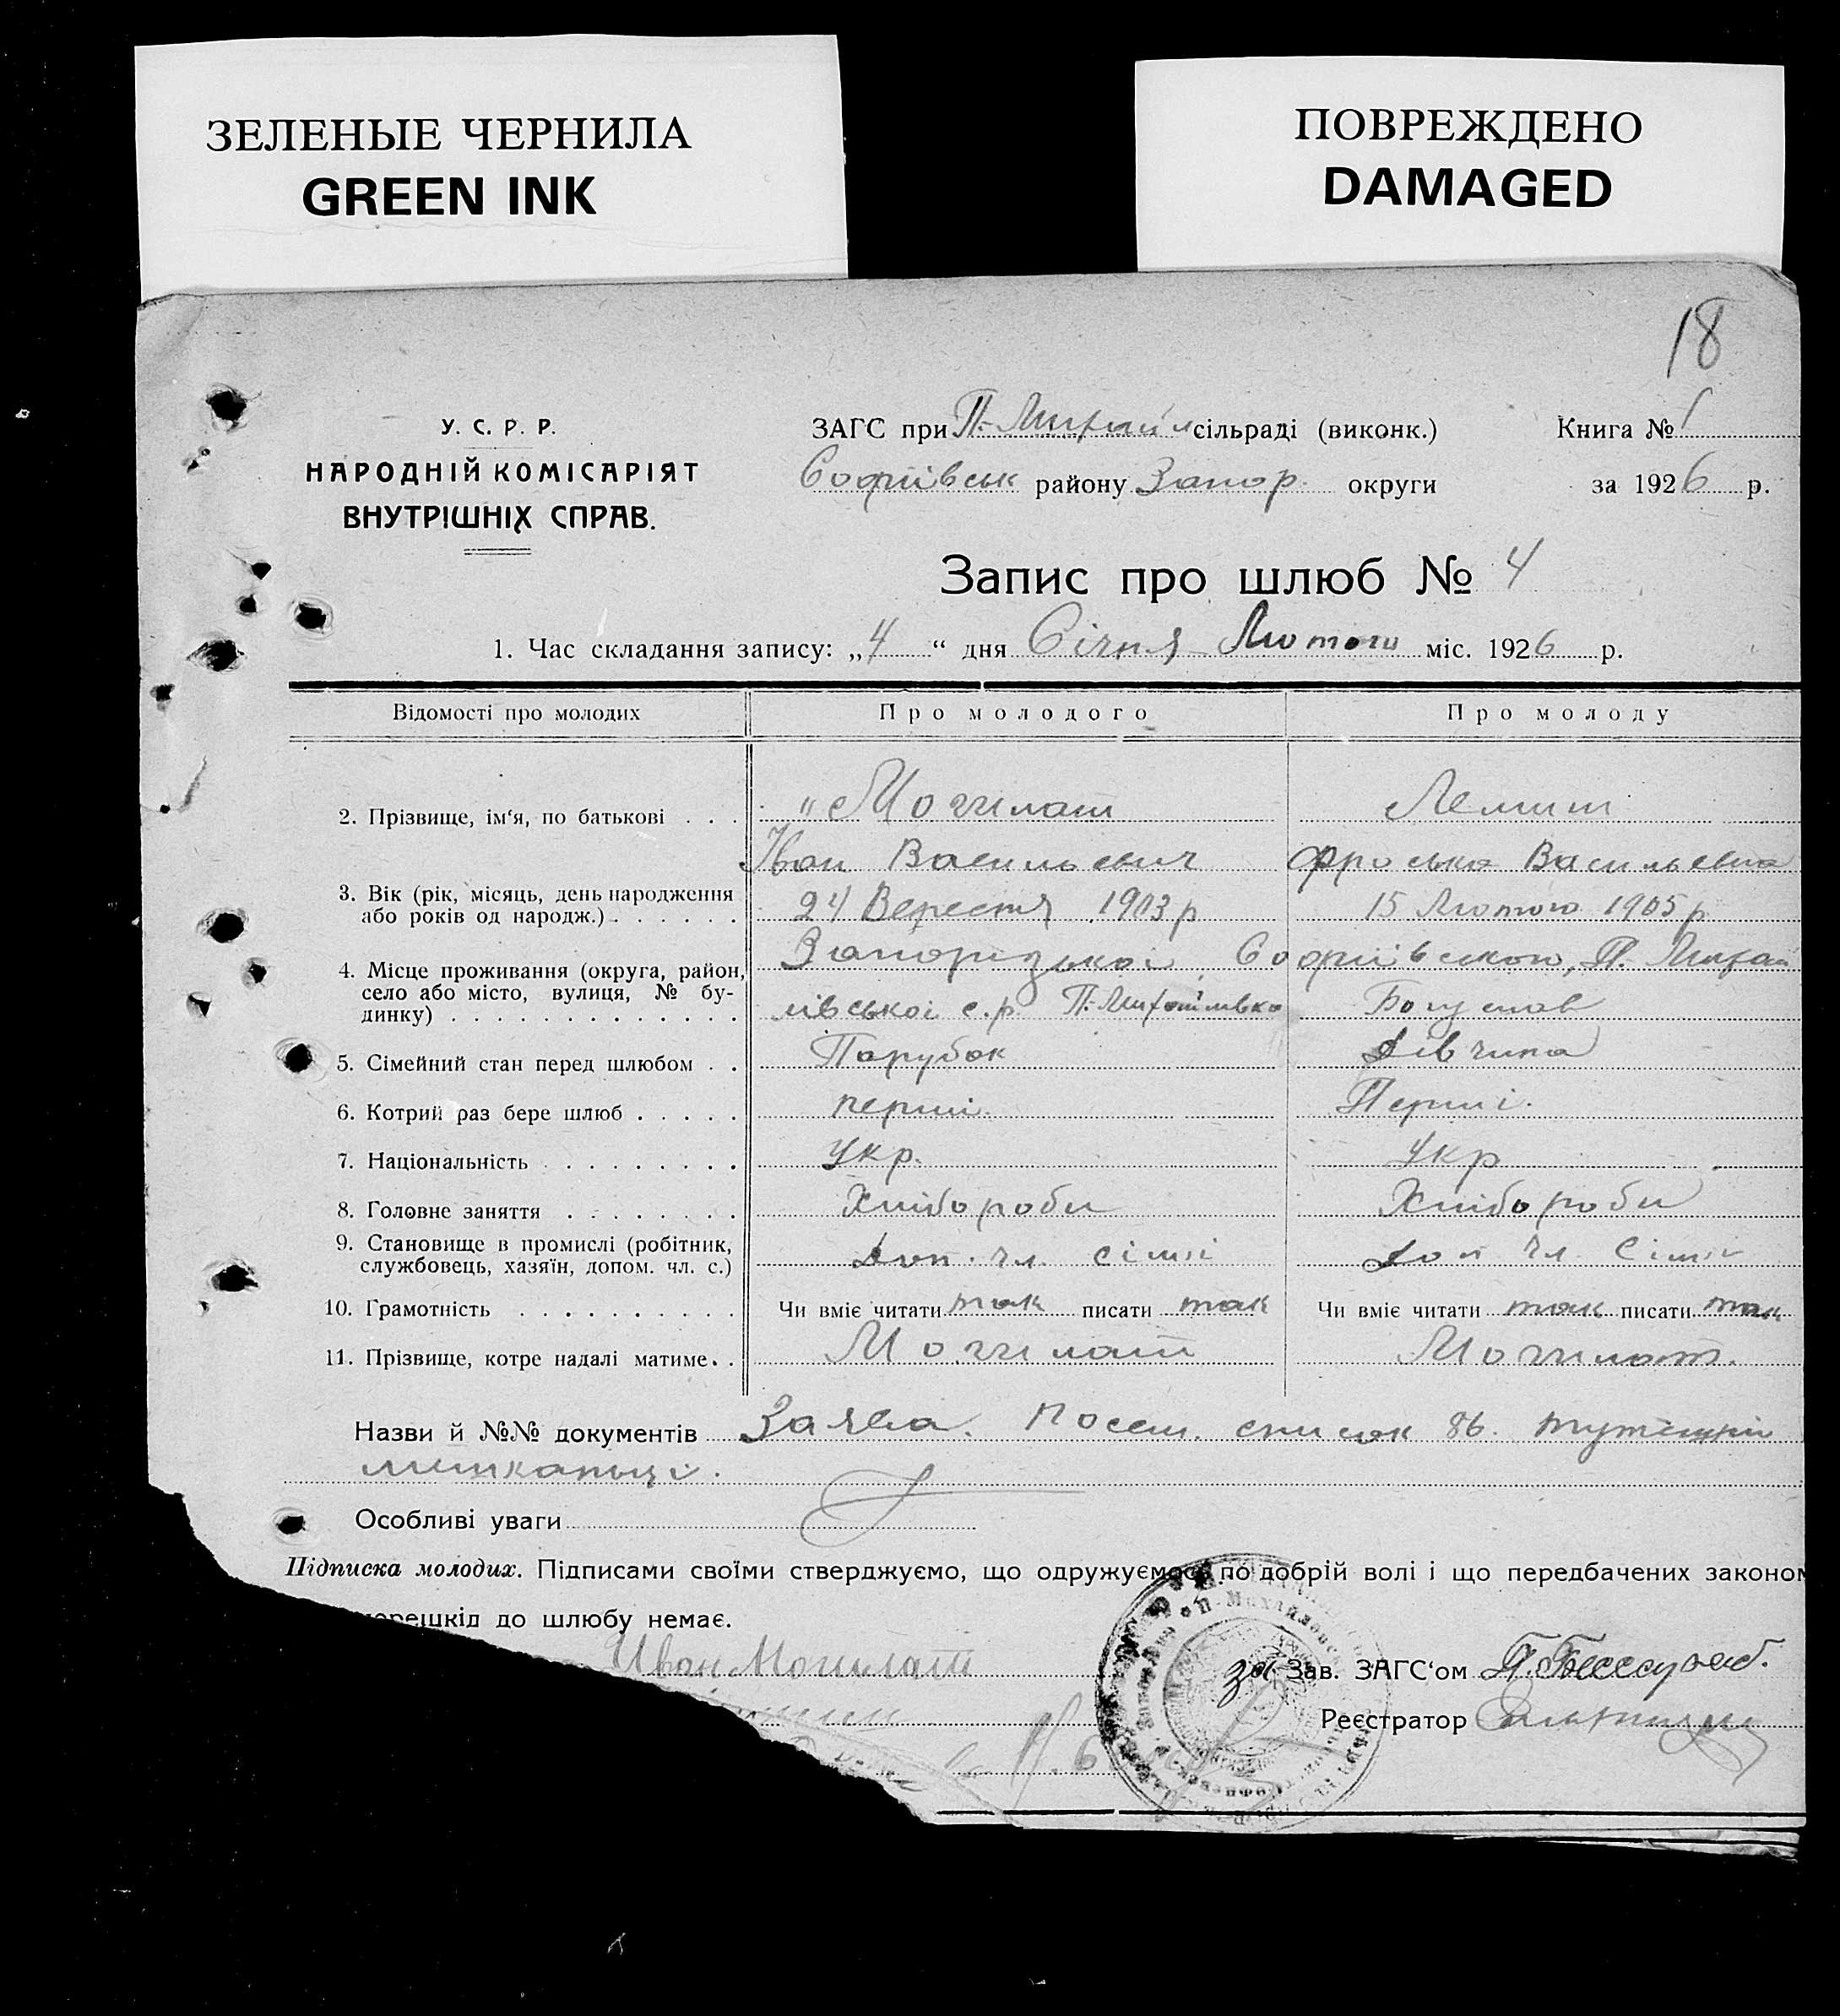 ЗЕЛЕНЫЕ ЧЕРНИЛА
GREEN INK
ПОВРЕЖДЕНО
DAMAGED
18
У. С. Р. Р.
НАРОДНІЙ КОМІСАРІЯТ
ВНУТРІШНІХ СПРАВ.
ЗАГС при П.-Михайл сільраді (виконк.) Книга № 1
Софиївськ району Запор. округи за 1926 р.
Запис про шлюб № 4
1. Час складання запису: „4“ дня Січня Лютого міс. 1926 р.
Відомості про молодих Про молодого Про молоду
2. Прізвище, ім‘я, по батькові . . . Могилат
Іван Васильевич Фроська Васильевна
3. Вік (рік, місяць, день народження
або років од народж.) 24 Вересня 1903 р 15 Лютого 1905 р
4. Місце проживання (округа, район, Запорізької, Софиївського, П. Михай
село або місто, вулиця, № бу-
динку) лівської с.р. П.-Михайлівка Богуслав
5. Сімейний стан перед шлюбом . . Парубок Дівчина
6. Котрий раз бере шлюб . . . . . перший Перший.
7. Національність Укр. Укр
8. Головне заняття Хлібороби Хлібороби
9. Становище в промислі (робітник,
службовець, хазяїн, допом. чл. с.) Доп. чл. сімї Доп чл. Сімї
10. Грамотність Чи вміє читати так писати так Чи вміє читати так писати так
11. Прізвище, котре надалі матиме . . Могилат Могилат.
Назви й №№ документів Заява. Посем. список 86. тутешні
мешканьці.
Особливі уваги
Підписка молодих. Підписами своїми стверджуємо, що одружуємось по добрій волі і що передбачених законом
перешкід до шлюбу немає.
Иван Могилат
За Зав. ЗАГС‘ом
Реєстратор